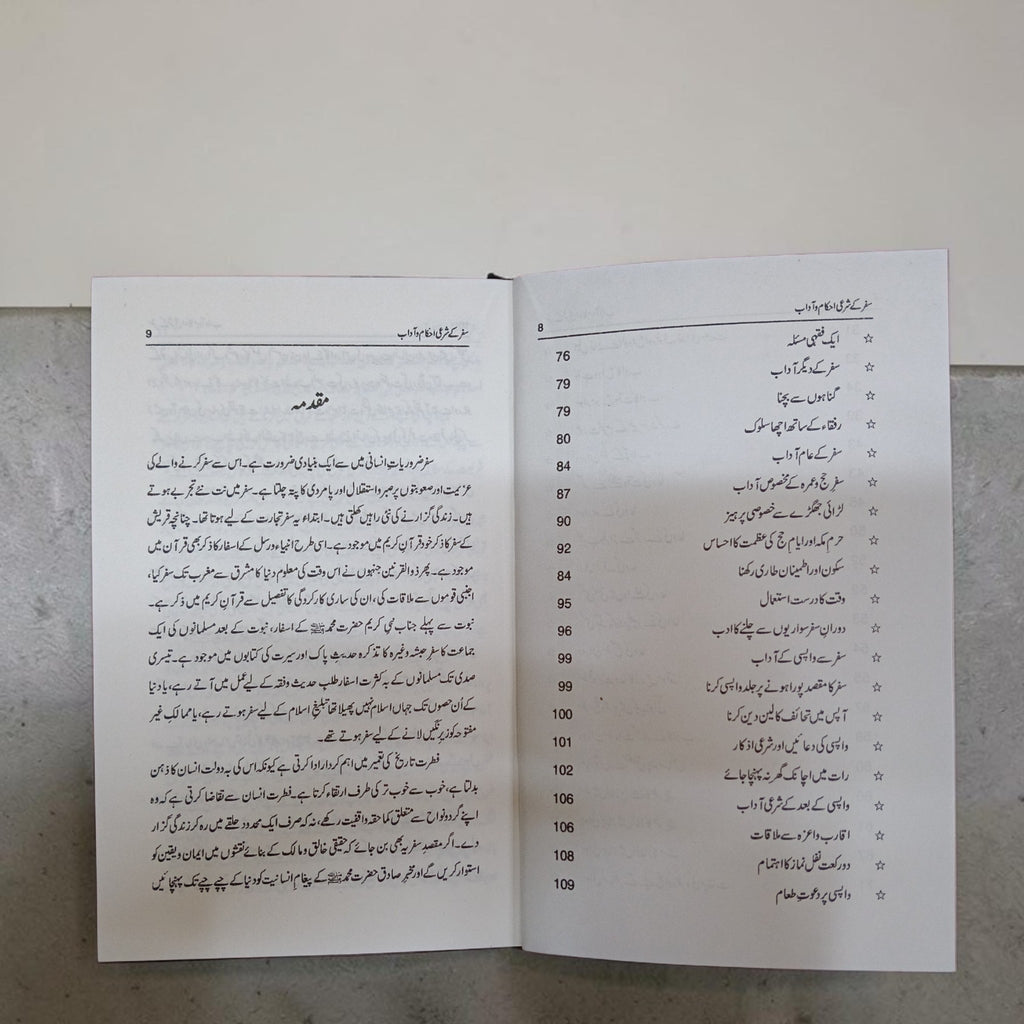 سفر کے شرعی احکام و آداب 8
☆ ایک فقہی مسئلہ 76
☆ سفر کے دیگر آداب 79
☆ گناہوں سے بچنا 79
☆ رفقاء کے ساتھ اچھا سلوک 80
☆ سفر کے عام آداب 84
☆ سفرِ حج و عمرہ کے مخصوص آداب 87
☆ لڑائی جھگڑے سے خصوصی پرہیز 90
☆ حرم مکہ اور ایام حج کی عظمت کا احساس 92
☆ سکون اور اطمینان طاری رکھنا 84
☆ وقت کا درست استعمال 95
☆ دورانِ سفر سواریوں سے چلنے کا ادب 96
☆ سفر سے واپسی کے آداب 99
☆ سفر کا مقصد پورا ہونے پر جلد واپسی کرنا 99
☆ آپس میں تحائف کا لین دین کرنا 100
☆ واپسی کی دعائیں اور شرعی اذکار 101
☆ رات میں اچانک گھر نہ پہنچا جائے 102
☆ واپسی کے بعد کے شرعی آداب 106
☆ اقارب و اعزہ سے ملاقات 106
☆ دو رکعت نفل نماز کا اہتمام 108
☆ واپسی پر دعوتِ طعام 109
سفر کے شرعی احکام و آداب 9
مقدمہ
سفر ضروریاتِ انسانی میں سے ایک بنیادی ضرورت ہے۔ اس سے سفر کرنے والے کی
عزیمت اور صعوبتوں پر صبر و استقلال اور پامردی کا پتہ چلتا ہے۔ سفر میں نت نئے تجربے ہوتے
ہیں۔ زندگی گزارنے کی نئی راہیں کھلتی ہیں۔ ابتداءً یہ سفر تجارت کے لیے ہوتا تھا۔ چنانچہ قریش
کے سفر کا ذکر خود قرآنِ کریم میں موجود ہے۔ اسی طرح انبیاء و رسل کے اسفار کا ذکر بھی قرآن میں
موجود ہے۔ پھر ذوالقرنین جنہوں نے اس وقت کی معلوم دنیا کا مشرق سے مغرب تک سفر کیا،
اجنبی قوموں سے ملاقات کی، ان کی ساری کارکردگی کا تفصیل سے قرآنِ کریم میں ذکر ہے۔
نبوت سے پہلے جناب نبی کریم حضرت محمد ﷺ کے اسفار، نبوت کے بعد مسلمانوں کی ایک
جماعت کا سفرِ حبشہ وغیرہ کا تذکرہ حدیثِ پاک اور سیرت کی کتابوں میں موجود ہے۔ تیسری
صدی تک مسلمانوں کے بہ کثرت اسفار طلب حدیث و فقہ کے لیے عمل میں آتے رہے، یا دنیا
کے اُن حصوں تک جہاں اسلام نہیں پھیلا تھا تبلیغِ اسلام کے لیے سفر ہوتے رہے، یا ممالک غیر
مفتوحہ کو زیرِ نگیں لانے کے لیے سفر ہوتے تھے۔
فطرت تاریخ کی تعمیر میں اہم کردار ادا کرتی ہے کیونکہ اس کی بہ دولت انسان کا ذہن
بدلتا ہے، خوب سے خوب تر کی طرف ارتقاء کرتا ہے۔ فطرت انسان سے تقاضا کرتی ہے کہ وہ
اپنے گرد و نواح سے متعلق کما حقہ واقفیت رکھے، نہ کہ صرف ایک محدود حلقے میں رہ کر زندگی گزار
دے۔ اگر مقصدِ سفر یہ بھی بن جائے کہ حقیقی خالق و مالک کے بنائے نقشوں میں ایمان و یقین کو
استوار کریں گے اور مخبرِ صادق حضرت محمد ﷺ کے پیغامِ انسانیت کو دنیا کے چپے چپے تک پہنچائیں